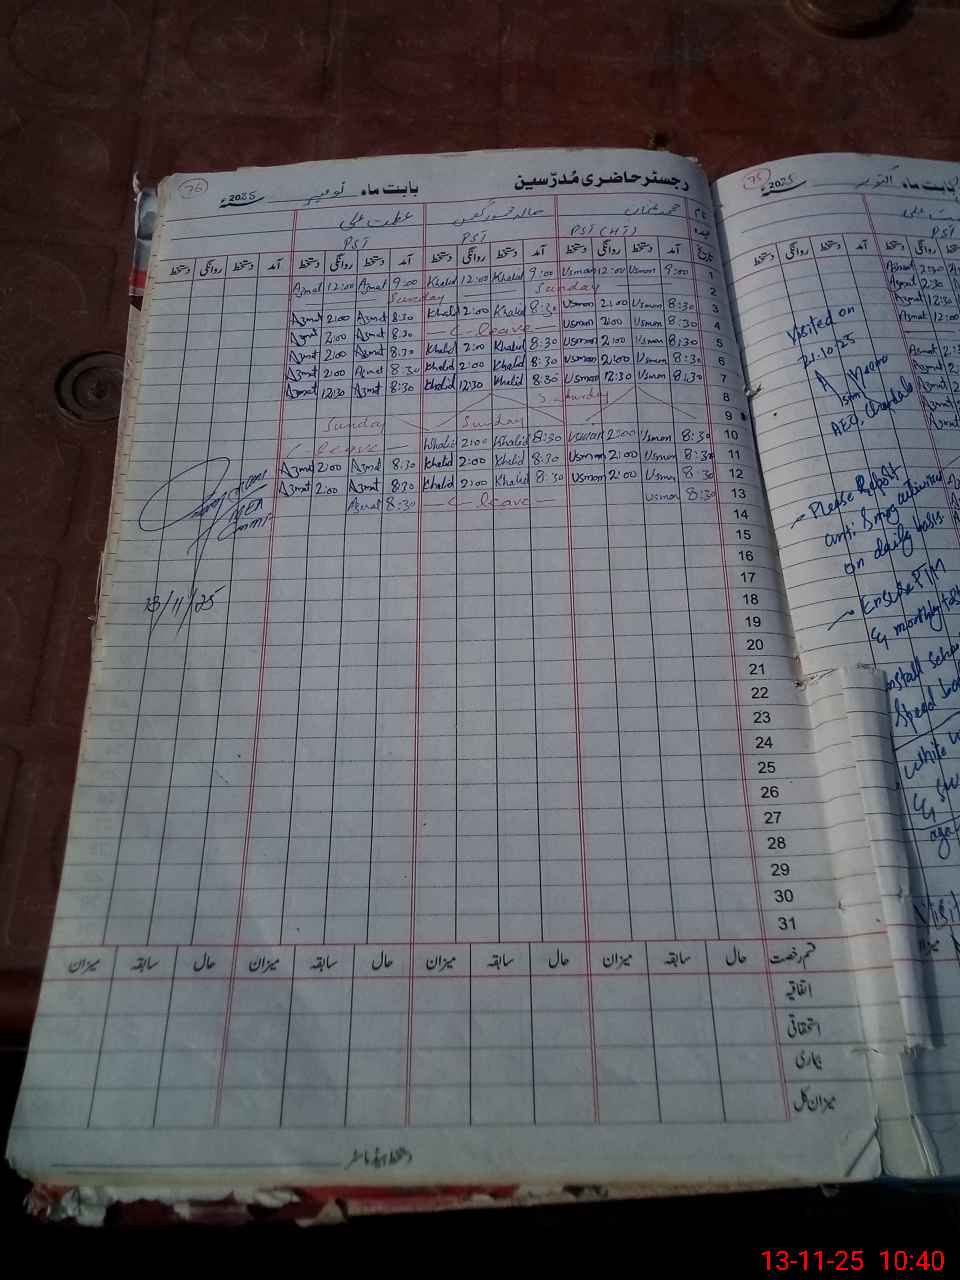 رجسٹر حاضری مُدرّسین بابت ماہ نومبر 2025ء 76
نام محمد عثمان عظمت علی
عہدہ PST (HT) PST PST
تاریخ آمد دستخط روانگی دستخط آمد دستخط روانگی دستخط آمد دستخط روانگی دستخط آمد دستخط روانگی دستخط
1 9:00 Usman 12:00 Usman 9:00 Khalid 12:00 Khalid 9:00 Azmat 12:00 Azmat
2 Sunday Sunday
3 8:30 Usman 2:00 Usman 8:30 Khalid 2:00 Khalid 8:30 Azmat 2:00 Azmat
4 8:30 Usman 2:00 Usman C-leave 8:30 Azmat 2:00 Azmat
5 8:30 Usman 2:00 Usman 8:30 Khalid 2:00 Khalid 8:30 Azmat 2:00 Azmat
6 8:30 Usman 2:00 Usman 8:30 Khalid 2:00 Khalid 8:30 Azmat 2:00 Azmat
7 8:30 Usman 12:30 Usman 8:30 Khalid 12:30 Khalid 8:30 Azmat 12:30 Azmat
8 Saturday
9 Sunday Sunday
10 8:30 Usman 2:00 Usman 8:30 Khalid 2:00 Khalid C-leave
11 8:30 Usman 2:00 Usman 8:30 Khalid 2:00 Khalid 8:30 Azmat 2:00 Azmat
12 8:30 Usman 2:00 Usman 8:30 Khalid 2:00 Khalid 8:30 Azmat 2:00 Azmat
13 8:30 Usman C-leave 8:30 Azmat
14
15
16
17
18
19
20
21
22
23
24
25
26
27
28
29
30
31
13/11/25
قسم رخصت حال سابقہ میزان حال سابقہ میزان حال سابقہ میزان حال سابقہ میزان
اتفاقیہ
استحقاقی
بیماری
میزان کل
دستخط ہیڈ ماسٹر
بابت ماہ اکتوبر 2025ء 75
PST
آمد دستخط روانگی دستخط
Visited on
21.10.25
AEO,
Please Report
anti Smog activities
on daily basis
Ensure PTM
& monthly
install
Speed
white
&
Visit
میزان
13-11-25 10:40